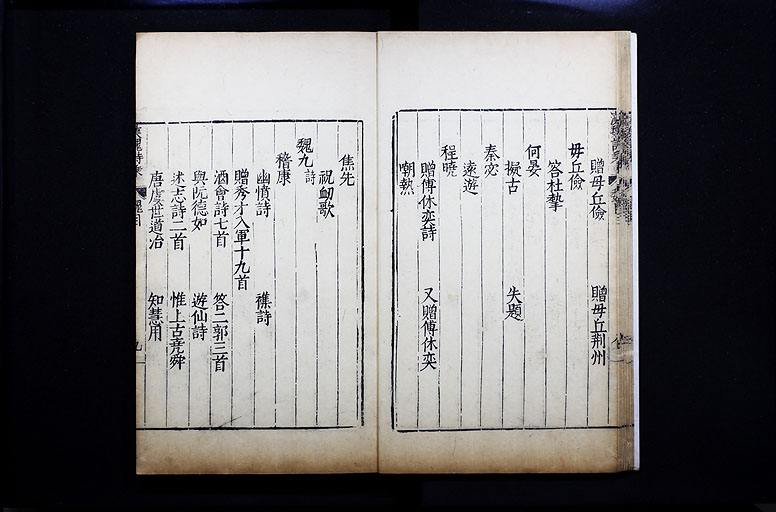 贈毋丘儉 贈毋丘荆州
毋丘儉
答杜摯
何晏
擬古 失題
秦宓
遠遊
程曉
贈傅休奕詩 又贈傅休奕
嘲熱
焦先
祝衂歌
魏九 詩
嵇康
幽憤詩 襍詩
贈秀才入軍十九首
酒會詩七首 答二郭三首
與阮德如 遊仙詩
述志詩二首 惟上古堯舜
唐虞世道治 知慧用
漢魏詩